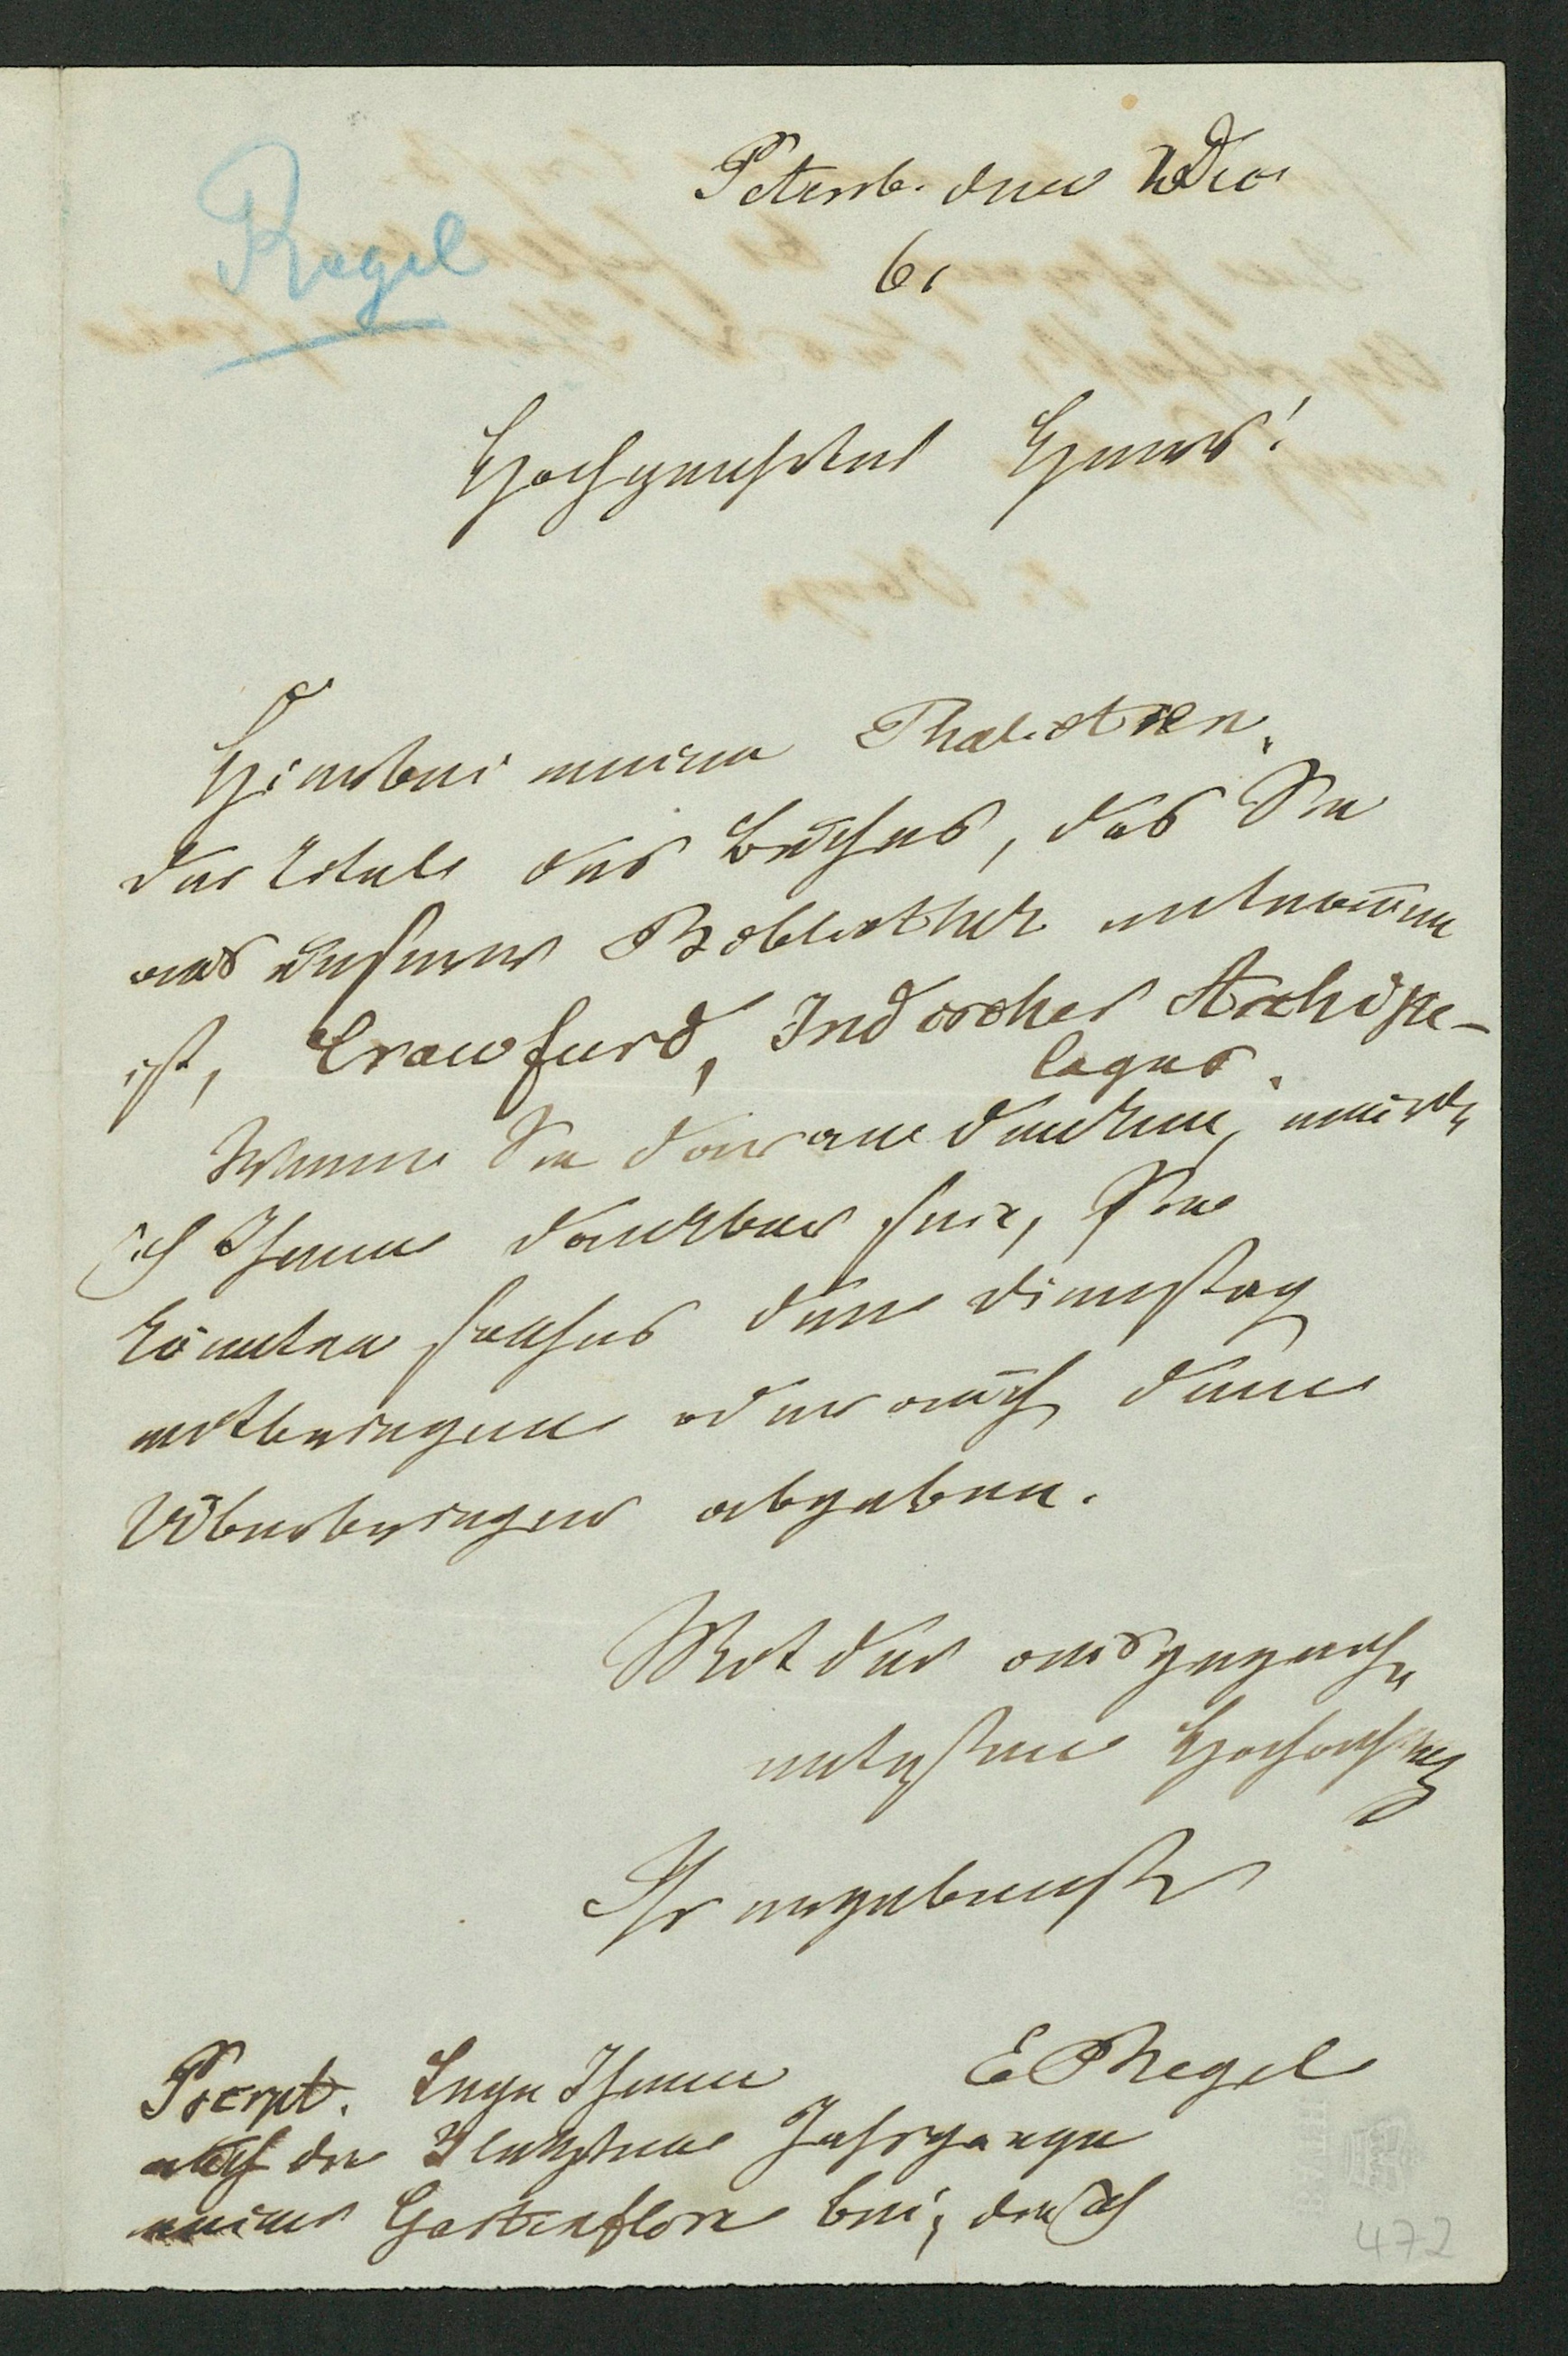 Regel
Petersb. den 2 Dec
61
Hochgeehrter Herr!
Hierbei meine Thalictren.
Der Titel des Buches, das Sie
aus unserer Bibliothek entnommen
ist, Crawfurd, Indischer Archipe-
lagus.
Wenn Sie daran denken, würde
ich Ihnen dankbar sein, Sie
könnten solches den Dienstag
mitbringen oder auch dem
Überbringer abgeben.
Mit der ausgezeich
netesten Hochachtung
Ihr ergebenster
E Regel
Pscrpt. Lege Ihnen
auch die 3 letzten Jahrgange
meiner Gartenflora bei, die ich
472